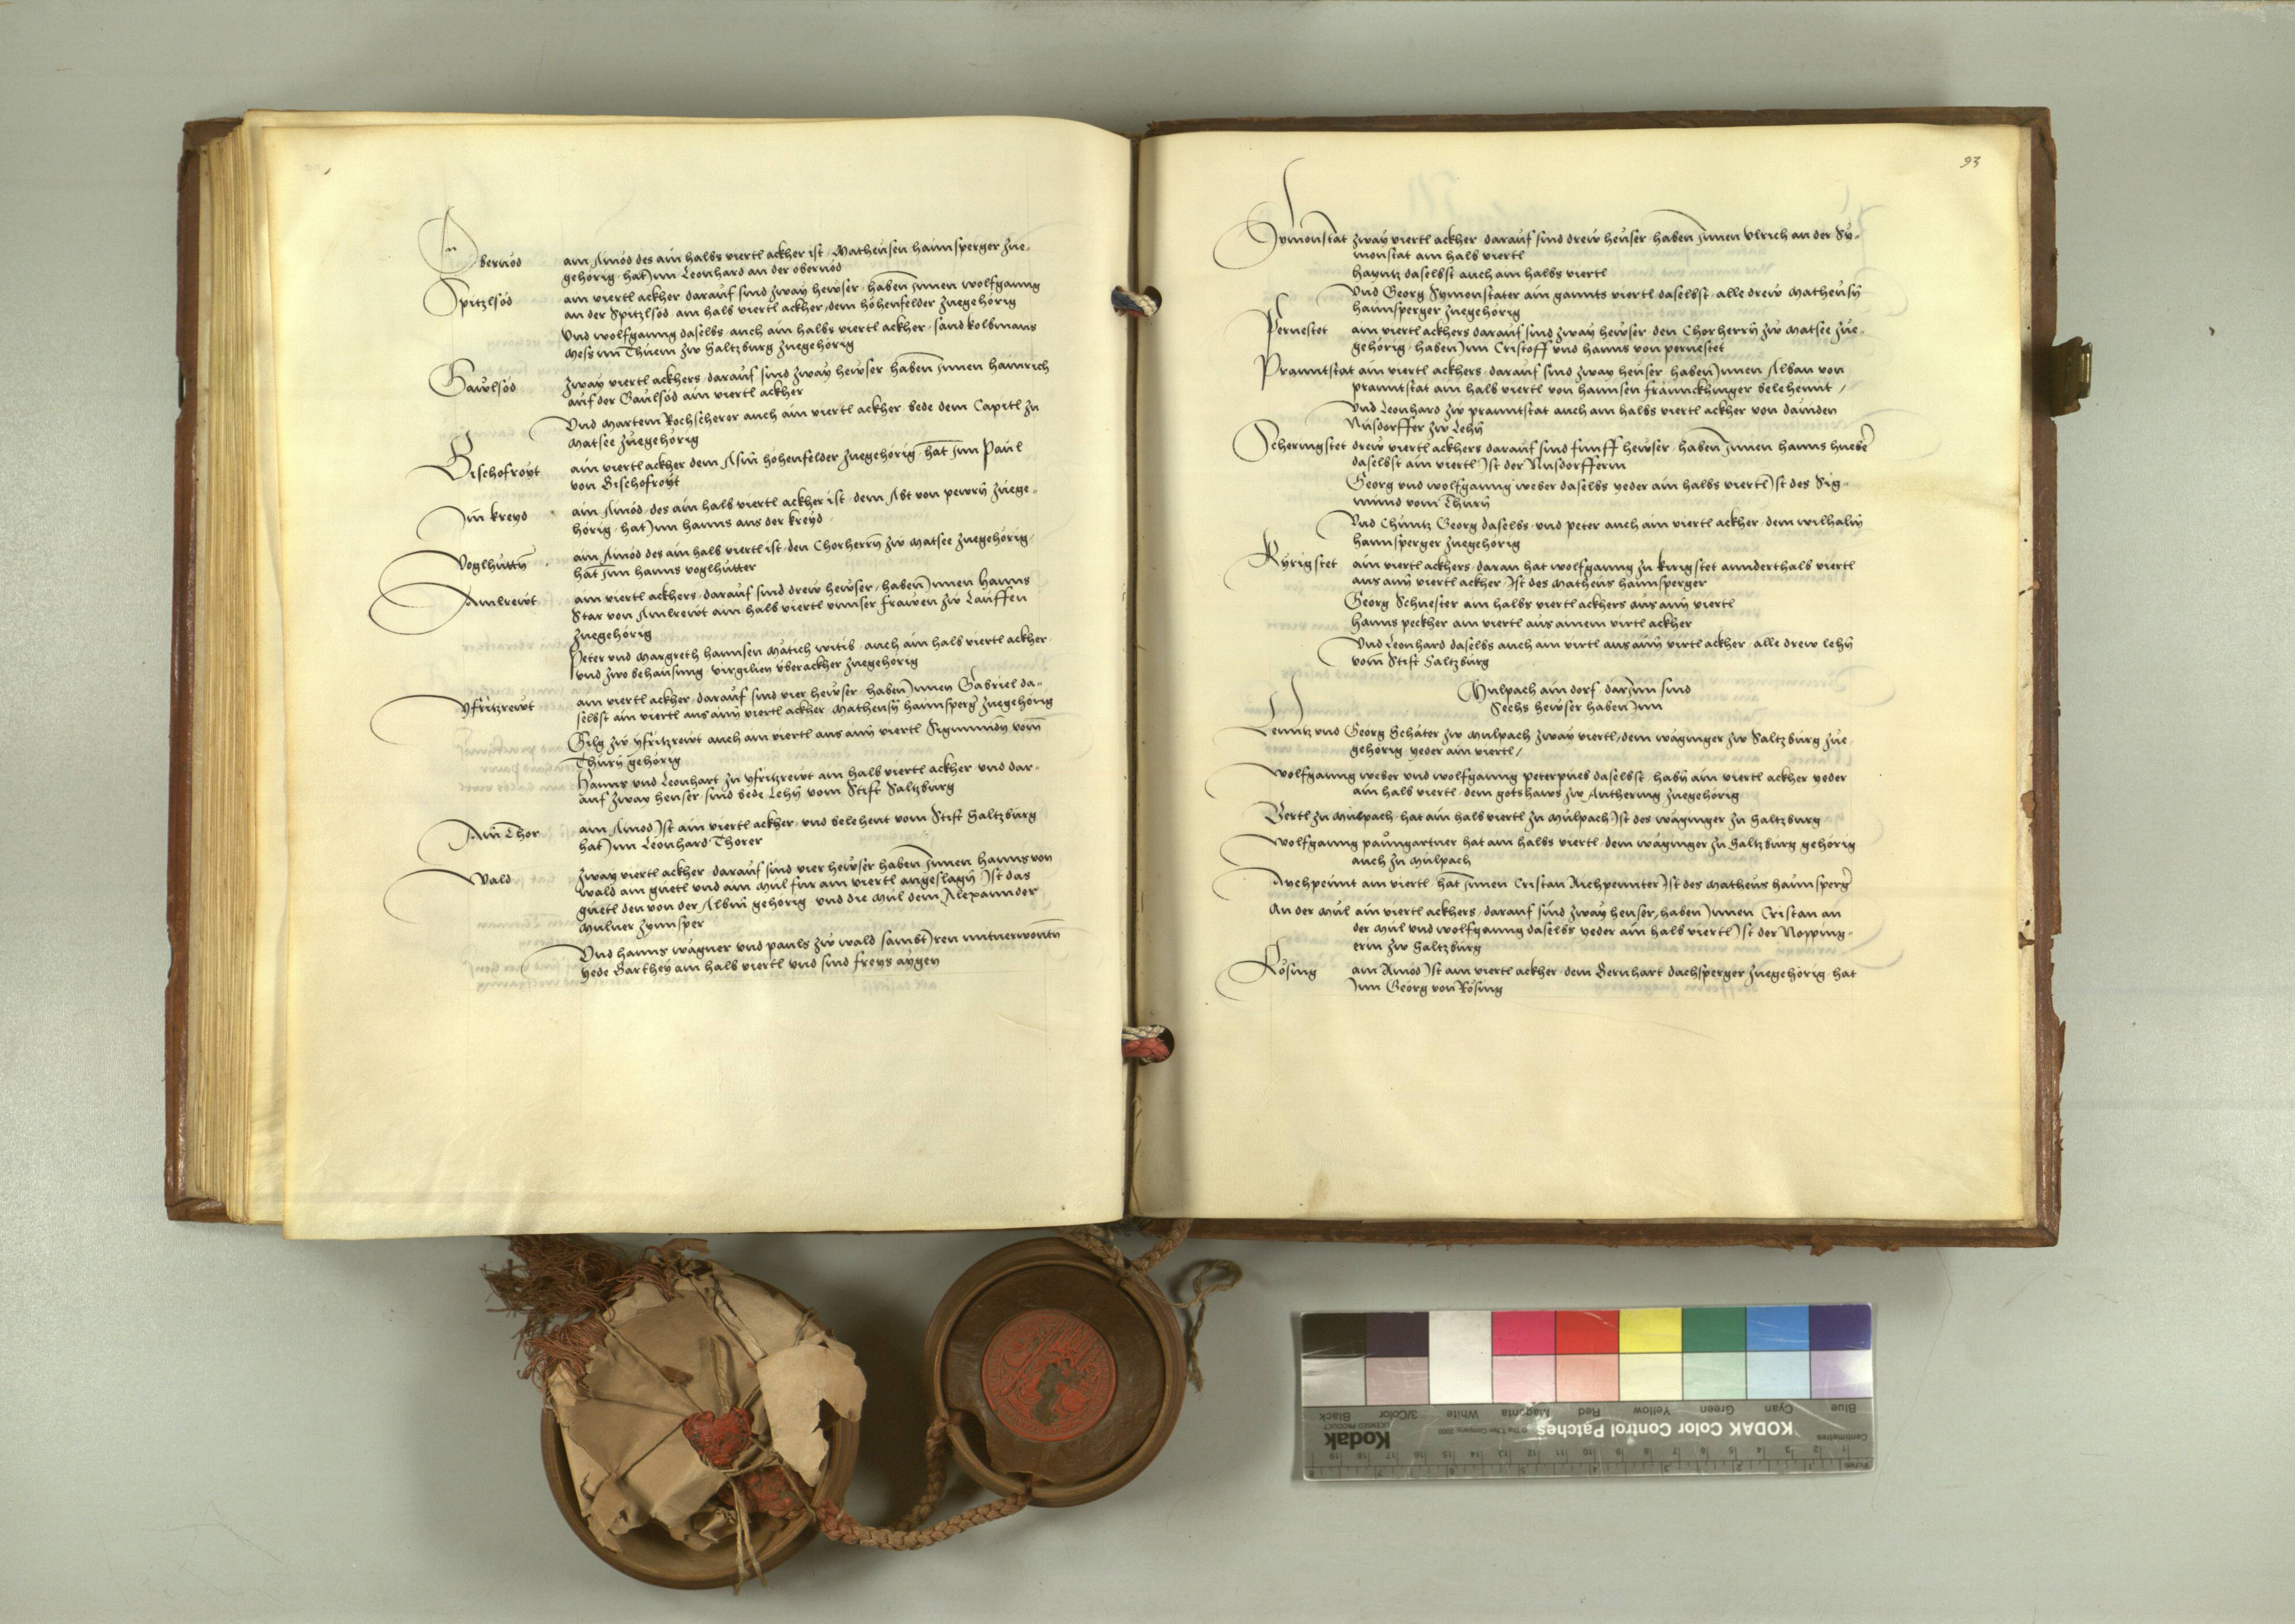 Obernöd ain Ainöd des ain halbs viertl ackher ist, Matheusen haunsperger zue-
gehörig, hat Inn Leonhard an der obernöd
Spitzlsöd ain viertl ackher darauf sind zway hewser, haben Innen wolfganng
an der Spitzlsöd, ain halb viertl ackher, dem höhenfelder zuegehörig
Vnd wolfganng daselbs, auch ain halbs viertl ackher, sand kolbmans
Mess im Thuem zw Saltzburg zuegehörig
Gawlsöd zway viertl ackhers, darauf sind zway hewser, haben Innen hainrich
auf der Gaulsöd ain viertl ackher
Vnd Martein Rochscherer auch ain viertl ackher, bede dem Capitl zu
Matsee zuegehörig
Bischofroyt ain viertl ackher dem Asm hohenfelder zuegehörig, hat Inn Paul
von Bischofroyt
Im kreyd ain Ainöd, des ain halb viertl ackher ist, dem Abt von pewrn zuege-
hörig, hat Inn hanns aus der kreyd
Voglhüttn ain Ainöd des ain halb viertl ist, den Chorherrn zw Matsee zuegehörig,
hat Inn hanns voglhütter
Amlrewt ain viertl ackhers, darauf sind drew hewser, haben Innen hanns
Star von Amlrewt ain halb viertl vnnser frawen zw Lauffen
zuegehörig
Peter vnd Margreth hannsen Mätich witib, auch ain halb viertl ackher,
vnd zwo behausung, virgilien überackher zuegehörig
Yfritzrewt ain viertl ackher, darauf sind vier hewser, haben Innen Gabriel da-
selbst ain viertl aus aim viertl ackher, Matheusn haunsperg zuegehörig
Gilg zw yfritzrewt auch ain viertl aus aim viertl Sigmundn vom
Thurn gehörig
Hanns vnd Leonhart zu yfritzrewt ain halb viertl ackher, vnd dar-
auf zway heuser, sind bede Lehn vom Stift Saltzburg
Am Thor ain Ainöd Ist ain viertl ackher, vnd belehent vom Stift Saltzburg
hat Inn Leonhard Thorer
Wald zway viertl ackher, darauf sind vier hewser haben Innen hanns von
wald ain guetl vnd ain Mül für ain viertl angeslagn Ist das
guetl den von der Albm gehörig, vnd die Mül dem Alexannder
Mulner zymsper
Vnd hanns wagner vnd pauls zw wald sambt Iren mituerwontn
yede Parthey ain halb viertl vnd sind freys aygen
93
Symonstat zway viertl ackher, darauf sind drew heuser, haben Innen Vlrich an der Sy-
monstat ain halb viertl
hayntz daselbst auch ain halbs viertl
Vnd Georg Symonstater ain gannts viertl daselbst, alle drew Matheusn
haunsperger zuegehörig
Pernestet ain viertl ackhers darauf sind zway hewser, den Chorherrn zw Matsee zue-
gehörig, haben Inn Cristoff vnd hanns von pernestet
Pranntstat ain viertl ackhers, darauf sind zway heuser haben Innen Alban von
pranntstat ain halb viertl von hannsen fraunckhinger belehennt,
Vnd Leonhard zw pranntstat auch ain halbs viertl ackher von dauiden
Nusdorffer zw Lehn
Scheringstet drew viertl ackhers darauf sind funff hewser, haben Innen hanns hueber
daselbst ain viertl Ist der Nusdorfferin
Georg vnd wolfganng weber daselbs yeder ain halbs viertl Ist des Sig-
mund vom Thurn
Vnd Chuntz Georg daselbs, vnd peter auch ain viertl ackher, dem wilhalm
haunsperger zuegehörig
Kyrigstet ain viertl ackhers, daran hat wolfganng zu kirigstet annderthalb viertl
aus aim viertl ackher Ist des Matheus haunsperger
Georg Schuester ain halbs viertl ackhers aus aim viertl
Hanns peckher ain viertl aus ainem virtl ackher
Vnd Leonhard daselbs auch ain virtl aus aim virtl ackher, alle drew lehn
vom Stift Saltzburg
Mulpach ain dorf, darInn sind
Sechs hewser haben Inn
Lenntz vnd Georg Schäter zw Mulpach zway viertl, dem wäginger zw Saltzburg zue
gehörig yeder ain viertl,
Wolfganng weber vnd wolfganng peterpueb daselbst, habn ain viertl ackher yeder
ain halb viertl, dem gotshaws zw Anthering zuegehörig
Bertl zu Mulpach, hat ain halb viertl zu Mulpach Ist des wäginger zu Saltzburg
Wolfganng paumgartner hat ain halbs viertl, dem wäginger zu Saltzburg gehörig
auch zu Mulpach
Aychpeunt ain viertl, hat Innen Cristan Aichpeunter Ist des Matheus haunsperger
An der Mül ain viertl ackhers, darauf sind zway heuser, haben Innen Cristan an
der Mül vnd wolfganng daselbs yeder ain halb viertl Ist der Nopping-
erin zw Saltzburg
Rösing ain Ainöd Ist ain viertl ackher, dem Bernhart dachsperger zuegehörig, hat
Inn Georg von Rösing
Blue
Cyan
Green
Yellow
Red
Magenta
White
3/Color
Black
KODAK Color Control Patches
Kodak
LICENSED PRODUCT
Centimetres
Inches